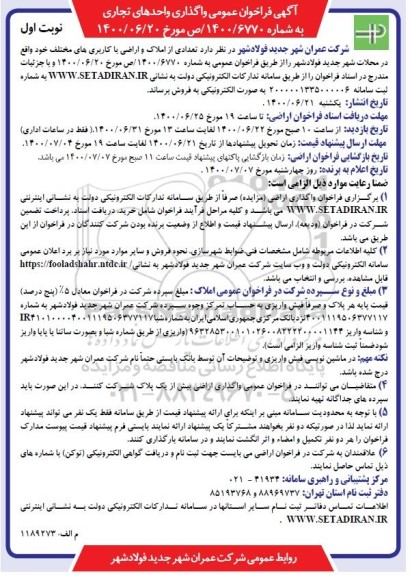 آگهی فراخوان عمومی واگذاری واحدهای تجاری
به شماره ۱۴۰۰/۶۷۷۰/ص مورخ ۱۴۰۰/۰۶/۲۰
نوبت اول
شرکت عمران شهر جدید فولادشهر در نظر دارد تعدادی از املاک و اراضی با کاربری های مختلف خود واقع
در محلات شهر جدید فولادشهر را از طریق فراخوان عمومی به شماره ۱۴۰۰/۶۷۷۰/ص مورخ ۱۴۰۰/۰۶/۲۰ و با جزئیات
مندرج در اسناد فراخوان را از طریق سامانه تدارکات الکترونیکی دولت به نشانی WWW.SETADIRAN.IR به شماره
ثبت سامانه ۲۰۰۰۰۰۱۳۳۵۰۰۰۰۰۶ به صورت الکترونیکی به فروش برساند.
تاریخ انتشار: یکشنبه ۱۴۰۰/۰۶/۲۱
مهلت دریافت اسناد فراخوان اراضی: تا ساعت ۱۹ مورخ ۱۴۰۰/۰۶/۲۵
تاریخ بازدید: از ساعت ۱۰ صبح مورخ ۱۴۰۰/۰۶/۲۲ لغایت ساعت ۱۳ مورخ ۱۴۰۰/۰۶/۳۱.( فقط در ساعات اداری)
مهلت ارسال پیشنهاد قیمت: زمان تحویل پیشنهادها از تاریخ ۱۴۰۰/۰۶/۲۱ لغایت ساعت ۱۹ مورخ ۱۴۰۰/۰۷/۰۴
تاریخ بازگشایی فراخوان اراضی: زمان بازگشایی پاکتهای پیشنهاد قیمت ساعت ۱۱ صبح مورخ ۱۴۰۰/۰۷/۰۷ می باشد.
تاریخ اعلام به برنده: روز چهارشنبه مورخ ۱۴۰۰/۰۷/۰۷
ضمنا رعایت موارد ذیل الزامی است:
۱) برگزاری فراخوان واگذاری اراضی (مزایده) صرفاً از طریق سامانه تدارکات الکترونیکی دولت به نشانی اینترنتی
WWW.SETADIRAN.IR می باشد و کلیه مراحل فرآیند فراخوان شامل خرید، دریافت اسناد، پرداخت تضمین
شرکت در فراخوان (ودیعه)، ارسال پیشنهاد قیمت و اطلاع از وضعیت برنده بودن شرکت کنندگان در فراخوان از این
طریق می باشد.
۲) کلیه اطلاعات مربوطه شامل مشخصات فنی، ضوابط شهرسازی، نحوه فروش و سایر موارد مورد نیاز بر برد اعلان عمومی
سامانه الکترونیکی دولت و وب سایت شرکت عمران شهر جدید فولادشهر به نشانی/ https://fooladshahr.ntdc.ir
قابل مشاهده، بررسی و انتخاب می باشد.
۳) مبلغ و نوع سپرده شرکت در فراخوان عمومی املاک : مبلغ سپرده شرکت در فراخوان معادل ۵٪ (پنج درصد)
قیمت پایه هر پلاک و صرفا فیش واریزی به حساب تمرکز وجوه سپرده شرکت عمران شهر جدید فولادشهر به شماره
نکته مهم: در ماشین نویسی فیش واریزی و توضیحات آن توسط بانک بایستی حتماً نام شرکت عمران شهر جدید فولادشهر
درج شده باشد.
۴) متقاضیان می توانند در فراخوان عمومی واگذاری اراضی بیش از یک پلاک شرکت کنند. در این صورت باید
سپرده های جداگانه تهیه نمایند.
۵) با توجه به محدودیت سامانه مبنی بر اینکه برای ارائه پیشنهاد قیمت از طریق سامانه فقط یک نفر می تواند پیشنهاد
ارائه نماید لذا در صورتیکه دو نفر بخواهند مشترکاً یک پیشنهاد ارائه نمایند بایستی فرم پیشنهاد قیمت پیوست مدارک
فراخوان را هر دو نفر تکمیل و امضاء و اثر انگشت نمایند و در سامانه بارگذاری کنند.
۶) علاقمندان به شرکت در فراخوان اراضی می بایست جهت ثبت نام و دریافت گواهی الکترونیکی (توکن) با شماره های
ذیل تماس حاصل نمایند.
مرکز پشتیبانی و راهبری سامانه: ۴۱۹۳۴ - ۰۲۱
دفتر ثبت نام استان تهران: ۸۸۹۶۹۷۳۷ و ۸۵۱۹۳۷۶۸
اطلاعات تماس دفاتر ثبت نام سایر استانها در سامانه تدارکات الکترونیکی دولت به نشانی اینترنتی
WWW.SETADIRAN.IR .
م الف: ۱۱۸۹۲۷۳
روابط عمومی شرکت عمران شهر جدید فولادشهر